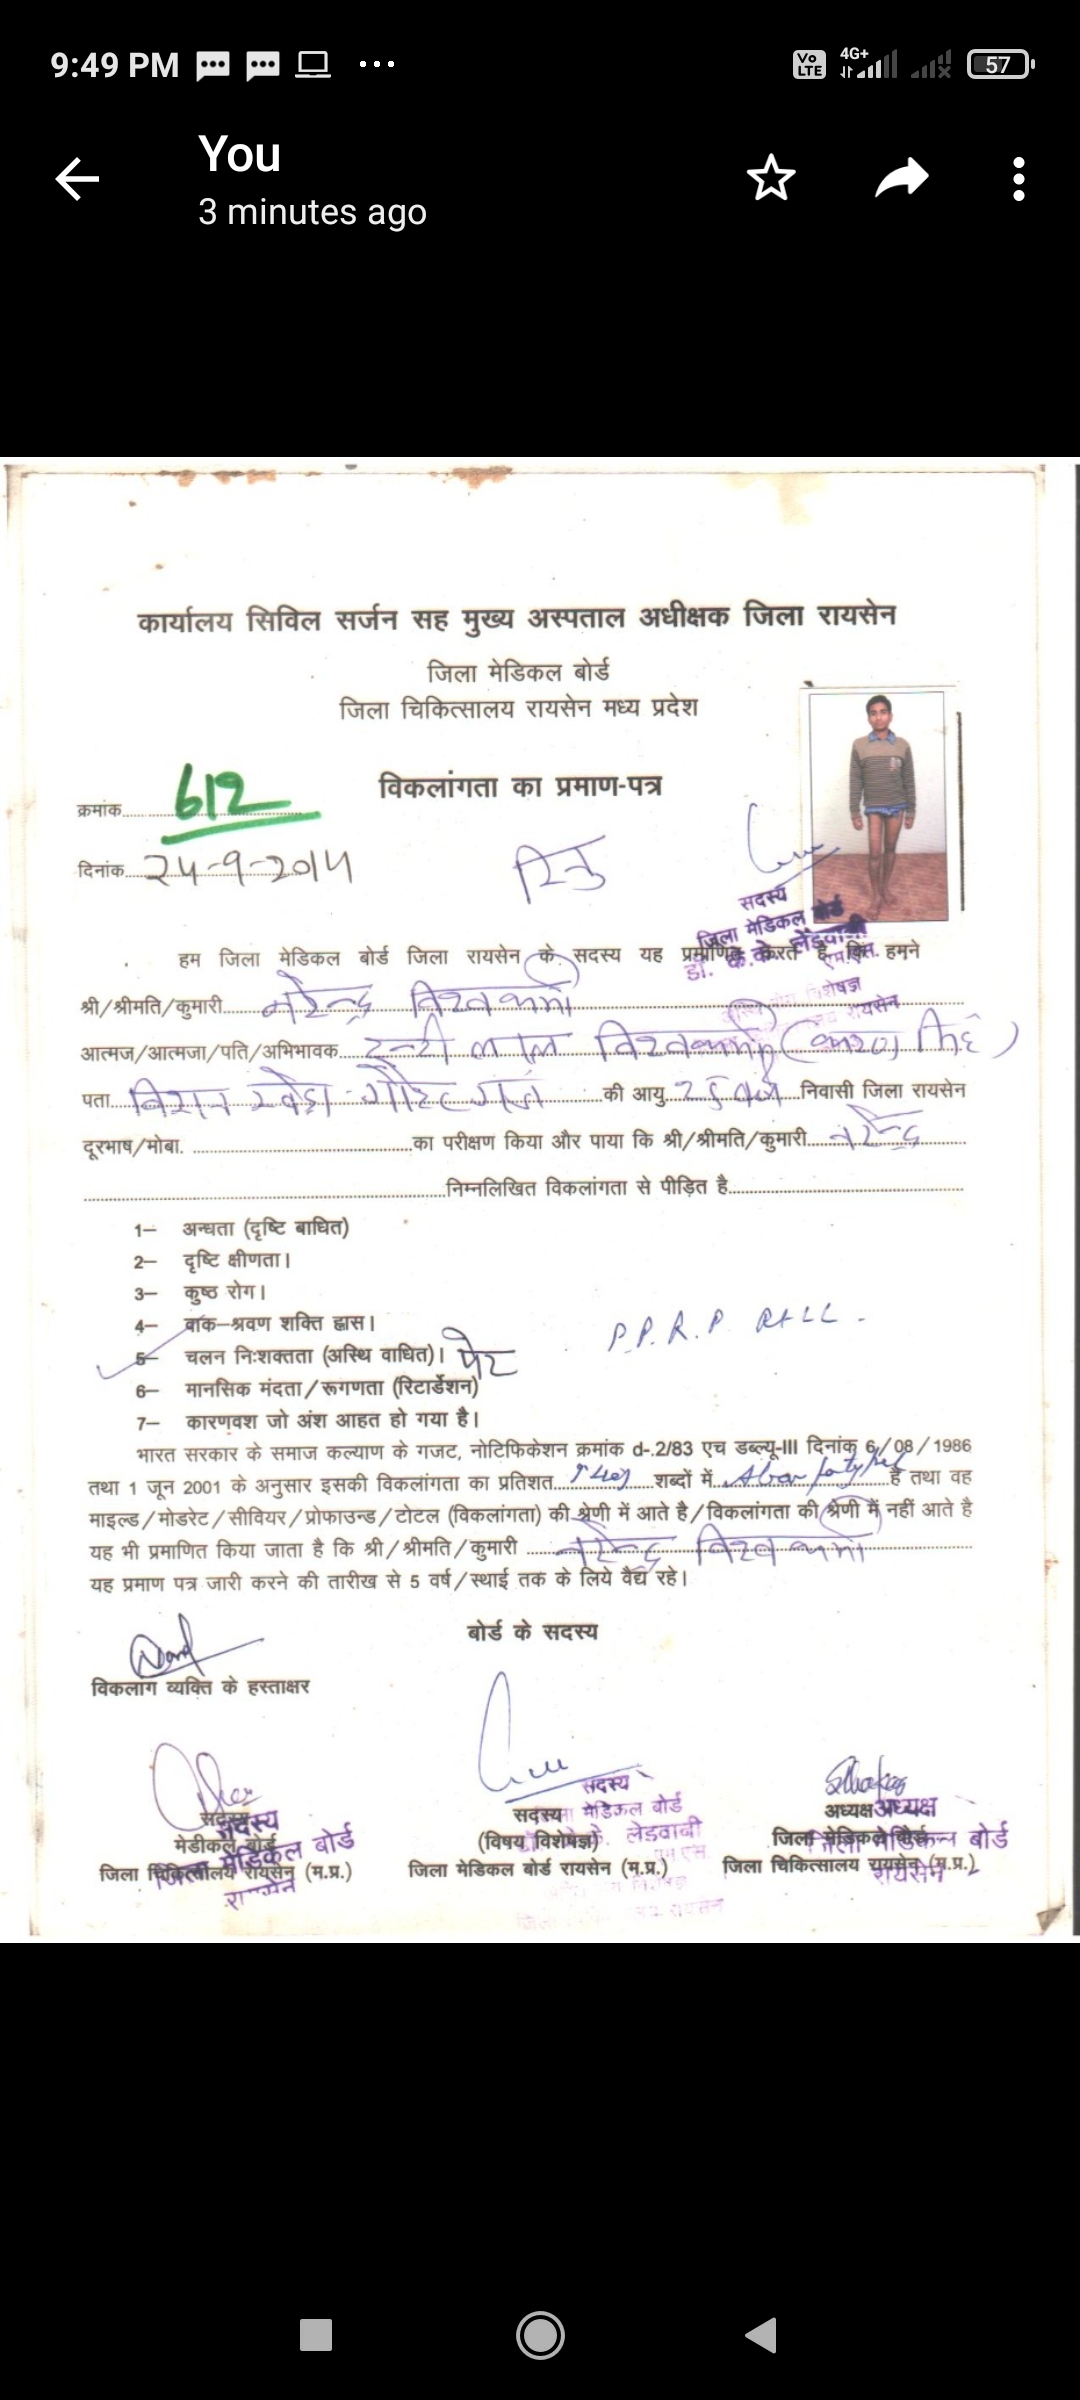 9:49 PM
Vo LTE 4G+ 57
You
3 minutes ago
कार्यालय सिविल सर्जन सह मुख्य अस्पताल अधीक्षक जिला रायसेन
जिला मेडिकल बोर्ड
जिला चिकित्सालय रायसेन मध्य प्रदेश
विकलांगता का प्रमाण-पत्र
क्रमांक 612
दिनांक 24-9-2014
सदस्य
जिला मेडिकल बोर्ड
हम जिला मेडिकल बोर्ड जिला रायसेन के सदस्य यह प्रमाणित करते है कि हमने
श्री/श्रीमति/कुमारी नरेन्द्र विश्वकर्मा
आत्मज/आत्मजा/पति/अभिभावक लाल विश्वकर्मा
पता की आयु निवासी जिला रायसेन
दूरभाष/मोबा. का परीक्षण किया और पाया कि श्री/श्रीमति/कुमारी नरेन्द्र
निम्नलिखित विकलांगता से पीड़ित है
1– अन्धता (दृष्टि बाधित)
2– दृष्टि क्षीणता।
3– कुष्ठ रोग।
4– वाक–श्रवण शक्ति ह्रास।
P.P.R.P
5– चलन निःशक्तता (अस्थि वाधित)।
6– मानसिक मंदता/रूगणता (रिटार्डेशन)
7– कारणवश जो अंश आहत हो गया है।
भारत सरकार के समाज कल्याण के गजट, नोटिफिकेशन क्रमांक d-.2/83 एच डब्ल्यू-III दिनांक 6/08/1986
तथा 1 जून 2001 के अनुसार इसकी विकलांगता का प्रतिशत शब्दों में है तथा वह
माइल्ड/मोडरेट/सीवियर/प्रोफाउन्ड/टोटल (विकलांगता) की श्रेणी में आते है/विकलांगता की श्रेणी में नहीं आते है
यह भी प्रमाणित किया जाता है कि श्री/श्रीमति/कुमारी नरेन्द्र विश्वकर्मा
यह प्रमाण पत्र जारी करने की तारीख से 5 वर्ष/स्थाई तक के लिये वैद्य रहे।
बोर्ड के सदस्य
विकलांग व्यक्ति के हस्ताक्षर
सदस्य सदस्य अध्यक्ष
मेडीकल बोर्ड (विषय विशेषज्ञ) जिला मेडिकल बोर्ड
जिला चिकित्सालय रायसेन (म.प्र.) जिला मेडिकल बोर्ड रायसेन (म.प्र.) जिला चिकित्सालय रायसेन (म.प्र.)